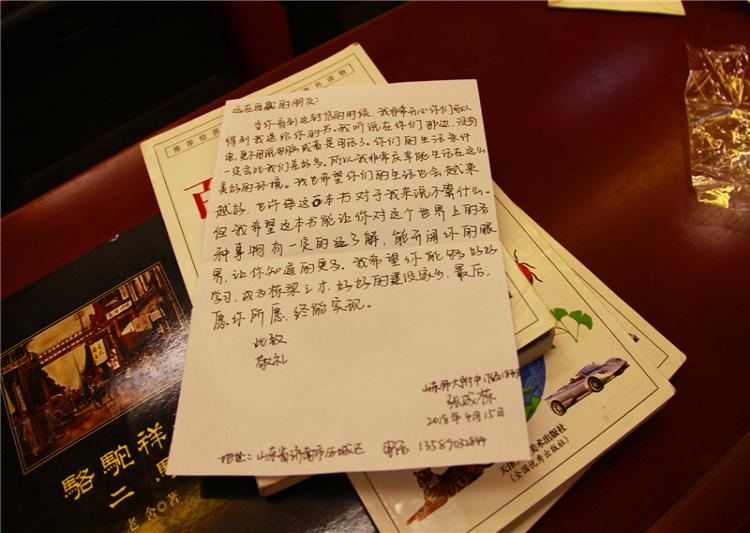 远在西藏的朋友：
当你看到这封信的时候，我非常开心你们可以
得到我送给你的书。我听说在你们那边，没有
电，更不用说电脑或者是电话了。你们的生活条件
一定会比我们差好多。所以我非常庆幸能生活在这么
美好的环境。我也希望你们的生活也会越来
越好，也许谁这本书对于我来说不算什么。
但我希望这本书能让你对这个世界上的各
种事物有一定的了解，能开阔你的眼
界，让你知道的更多。我希望你能够好好
学习，成为栋梁之才，好好的建设家乡，最后，
愿你所愿，终能实现。
此致
敬礼
山东师大附中
张成栋
2018年4月15日
地址：山东省济南市历城区 电话 13589032844
推荐给孩
外读物
百
駱駝祥
二
老舍◎著
美术出版社
(全国优秀出版社)